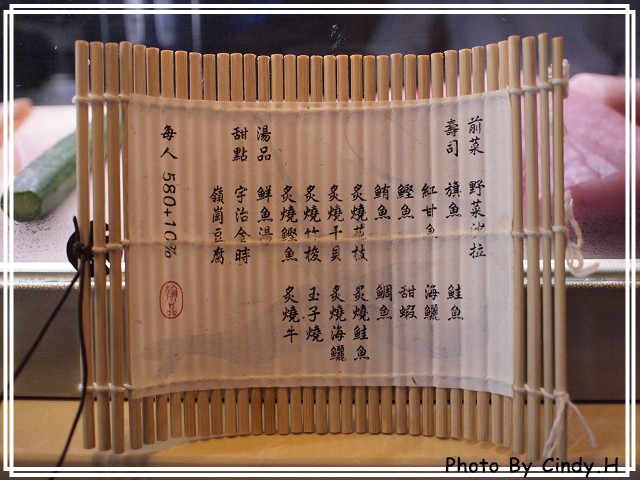 前菜 野菜沙拉
壽司 旗魚 鮭魚
紅甘魚 海鱺
鰹魚 甜蝦
鮪魚 鯛魚
炙燒花枝 炙燒鮭魚
炙燒干貝 炙燒海鱺
炙燒竹梭 玉子燒
炙燒鰹魚 炙燒牛
湯品 鮮魚湯
甜點 宇治金時
嶺崗豆腐
每人 580+10%
Photo By Cindy.H